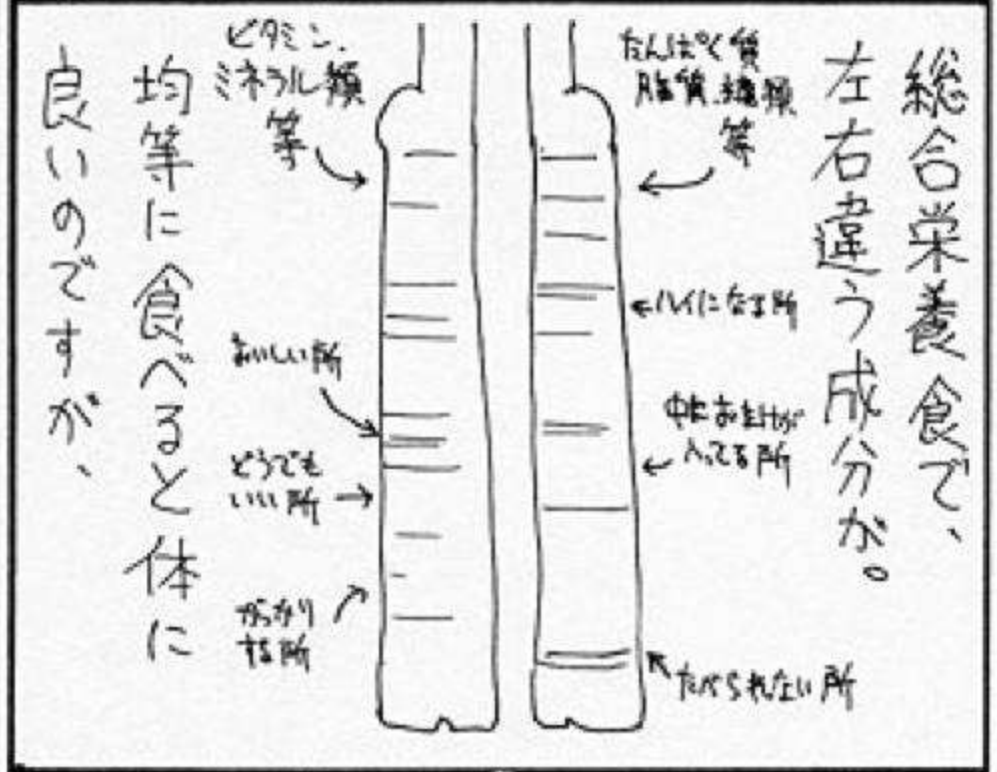 総合栄養食で、
左右違う成分が。
たんぱく質
脂質、糖類
等
←ハイになる所
中におまけが
入ってる所
たべられない所
ビタミン、
ミネラル類
等
おいしい所
どうでも
いい所
がっかり
する所
均等に食べると体に
良いのですが、